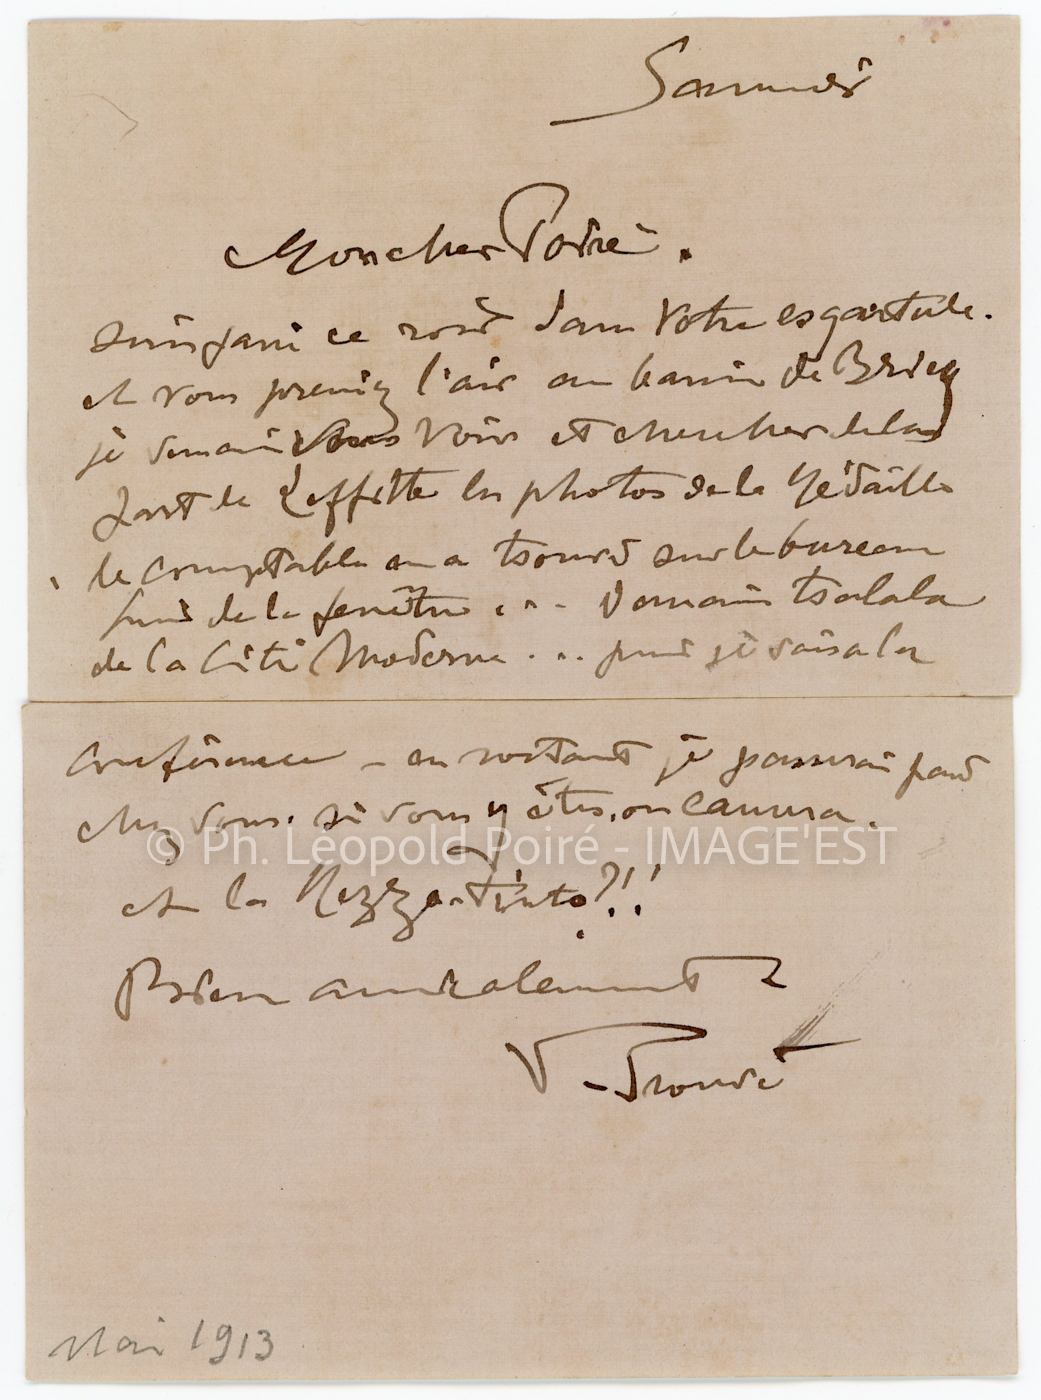 Samedi
Mon cher Poiré.
ce soir dans votre
et vous preniez l'air au bassin de Briey
je venais vous voir et chercher de la
part de Laffitte les photos de la Médaille
le comptable en a trouvé sur le bureau
près de la fenêtre ... Demain tralala
de la Cité Moderne ... puis je vais à la
conférence - en sortant je passerai par
chez vous. si vous y êtes, on causera.
© Ph. Léopold Poiré - IMAGE'EST
et la Mezzo-Tinto ?!!
Bien amicalement
V. Prouvé
Mai 1913